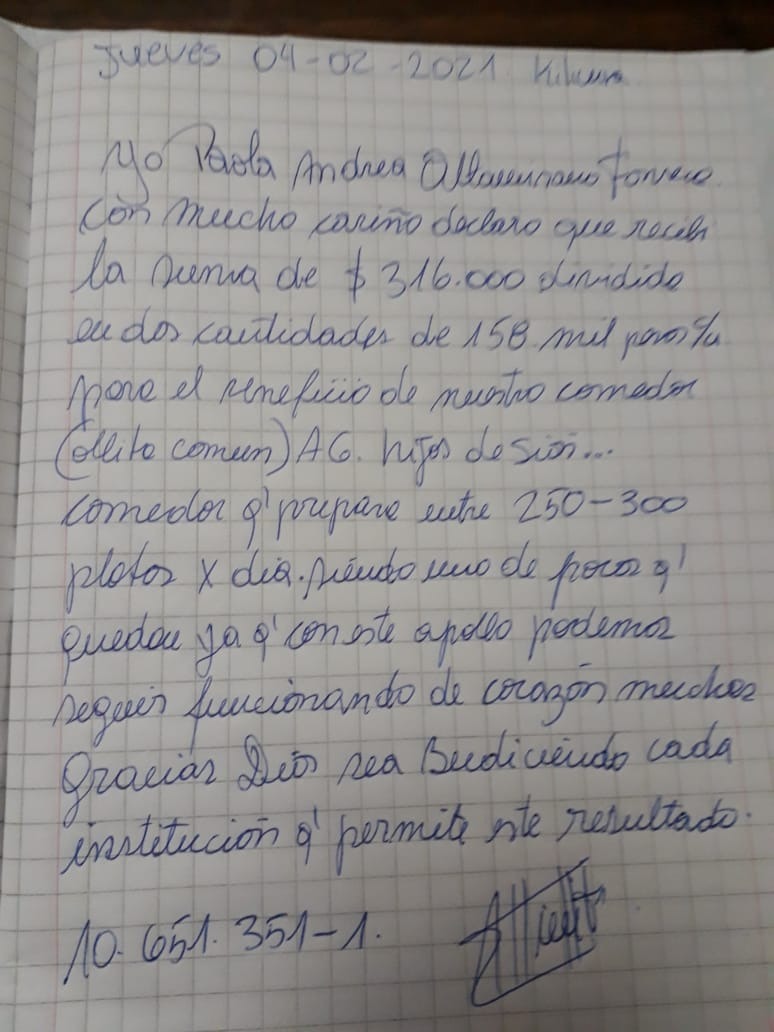 Jueves 04-02-2021
Yo Paola Andrea
con mucho cariño declaro que recibi
la suma de $ 316.000 dividido
en dos cantidades de 158 mil pesos c/u
para el veneficio de nuestro comedor
(ollita comun) AG. hijos de sion...
comedor q' prepara entre 250-300
platos x dia. siendo uno de pocos q'
quedan ya q' con este apollo podemos
seguir funcionando de corazón muchas
gracias Dios sea Bendiciendo cada
institución q' permite este resultado.
10.651.351-1.